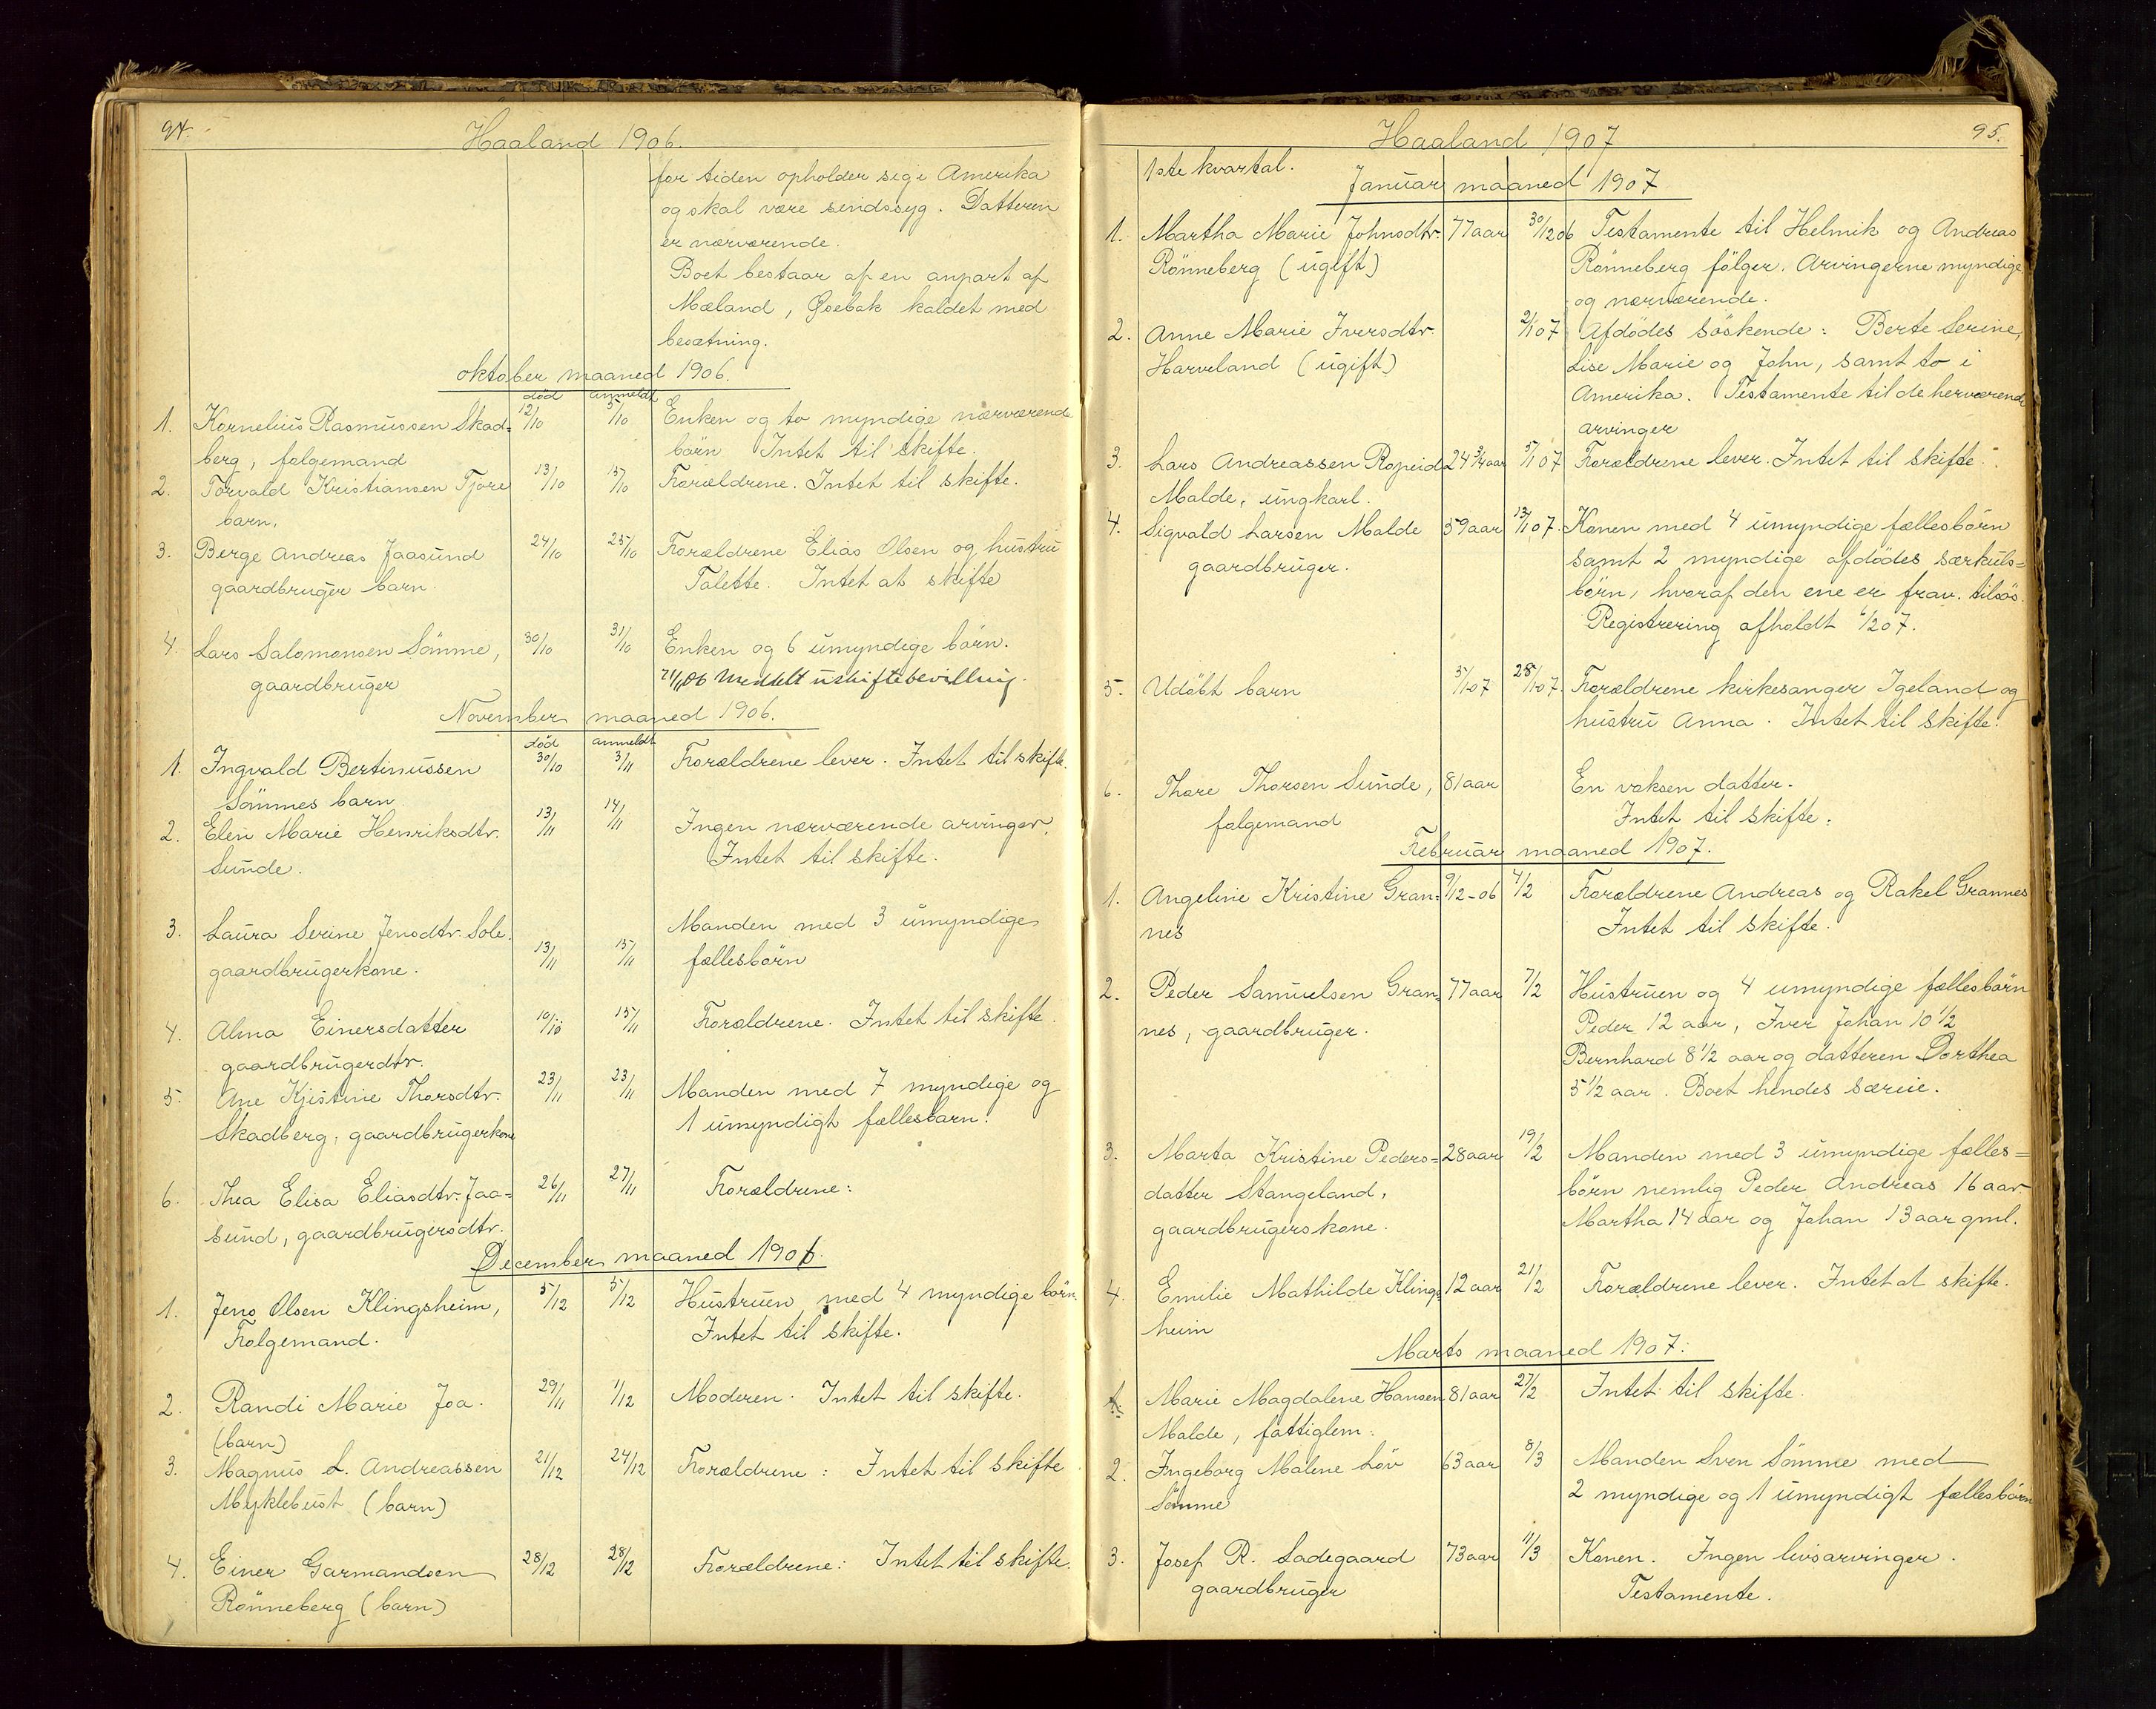 94.
Haaland 1906.
for tiden opholder sig i Amerika
og skal være sindssyg. Datteren
er nærværende.
Boet bestaar af en anpart af
Mæland, Øsebak kaldet med
besætning.
oktober maaned 1906.
död anmeldt
1. Kornelius Rasmussen Skad- 12/10 15/10 Enken og to myndige nærværende
berg, folgemand börn Intet til skifte.
2. Torvald Kristiansen Tjore 13/10 15/10 Forældrene. Intet til skifte.
barn.
3. Berge Andreas Jaasund 24/10 25/10 Forældrene Elias Olsen og hustru
gaardbruger barn. Talette. Intet at skifte
4. Lars Salomonsen Sömme, 30/10 31/10 Enken og 6 umyndige börn.
gaardbruger 21/11 06 Meddelt uskiftebevilling.
November maaned 1906.
död anmeldt
1. Ingvald Bertinussen 30/10 3/11 Forældrene lever. Intet til skifte.
Sömmes barn
2. Elen Marie Henriksdtr. 13/11 14/11 Ingen nærværende arvinger.
Sunde. Intet til skifte.
3. Laura Serine Jensdtr. Sole. Manden med 3 umyndige
gaardbrugerkone. 13/11 15/11 fællesbörn
4. Alma Einersdatter 10/10 15/11 Forældrene. Intet til skifte.
gaardbrugerdtr.
5. Ane Kjistine Thorsdtr. 23/11 23/11 Manden med 7 myndige og
Skadberg, gaardbrugerkone 1 umyndigt fællesbarn.
6. Thea Elisa Eliasdtr. Jaa- 26/11 27/11 Forældrene:
sund, gaardbrugersdtr.
December maaned 1906.
1. Jens Olsen Klingsheim, 5/12 5/12 Hustruen med 4 myndige börn.
Folgemand. Intet til skifte.
2. Randi Marie Joa. 29/11 1/12 Moderen. Intet til skifte.
(barn)
3. Magnus L. Andreassen 21/12 24/12 Forældrene: Intet til skifte
Myklebust (barn)
4. Einer Garmandsen 28/12 28/12 Forældrene: Intet til skifte.
Rönneberg (barn)
95.
Haaland 1907
1ste kvartal.
Januar maaned 1907
1. Martha Marie Johnsdtr. 77 aar 30/12 06 Testamente til Helmik og Andreas
Rönneberg (ugift) Rönneberg fölger. Arvingerne myndige
og nærværende.
2. Anne Marie Iversdtr. 2/1 07 Afdödes söskende: Berte Serine,
Harveland (ugift) Lise Marie og John, samt to i
Amerika. Testamente til de herværende
arvinger
3. Lars Andreassen Ropeid 24 3/4 aar 5/1 07 Forældrene lever. Intet til skifte.
Malde, ungkarl.
4. Sigvald Larsen Malde 59 aar 13/1 07. Konen med 4 umyndige fællesbörn
gaardbruger. samt 2 myndige afdödes særkuls-
börn, hvoraf den ene er frav. tilsös.
Registrering afholdt 6/2 07.
5. Udöbt barn 5/1 07 28/1 07. Forældrene kirkesanger Igeland og
hustru Anna. Intet til skifte.
6. Thore Thorsen Sunde, 81 aar En voksen datter.
folgemand Intet til skifte.
Februar maaned 1907.
1. Angeline Kristine Gran- 9/12-06 4/2 Forældrene Andreas og Rakel Grannes
nes Intet til skifte.
2. Peder Samuelsen Gran- 77 aar 7/2 Hustruen og 4 umyndige fællesbörn
nes, gaardbruger. Peder 12 aar, Iver Johan 10 1/2
Bernhard 8 1/2 aar og datteren Dorthea
5 1/2 aar. Boet hendes særeie.
3. Marta Kristine Peders- 28 aar 19/2 Manden med 3 umyndige fælles-
datter Stangeland, börn nemlig Peder Andreas 16 aar.
gaardbrugerskone. Martha 14 aar og Johan 13 aar gml.
4. Emilie Mathilde Klings- 12 aar 21/2 Forældrene lever. Intet at skifte.
heim
Marts maaned 1907.
1. Marie Magdalene Hansen 81 aar 27/2 Intet til skifte.
Malde, fattiglem.
2. Ingeborg Malene Löv 63 aar 8/3 Manden Sven Sömme med
Sömme 2 myndige og 1 umyndigt fællesbörn
3. Josef R. Sadegaard 73 aar 11/3 Konen. Ingen livsarvinger.
gaardbruger Testamente.